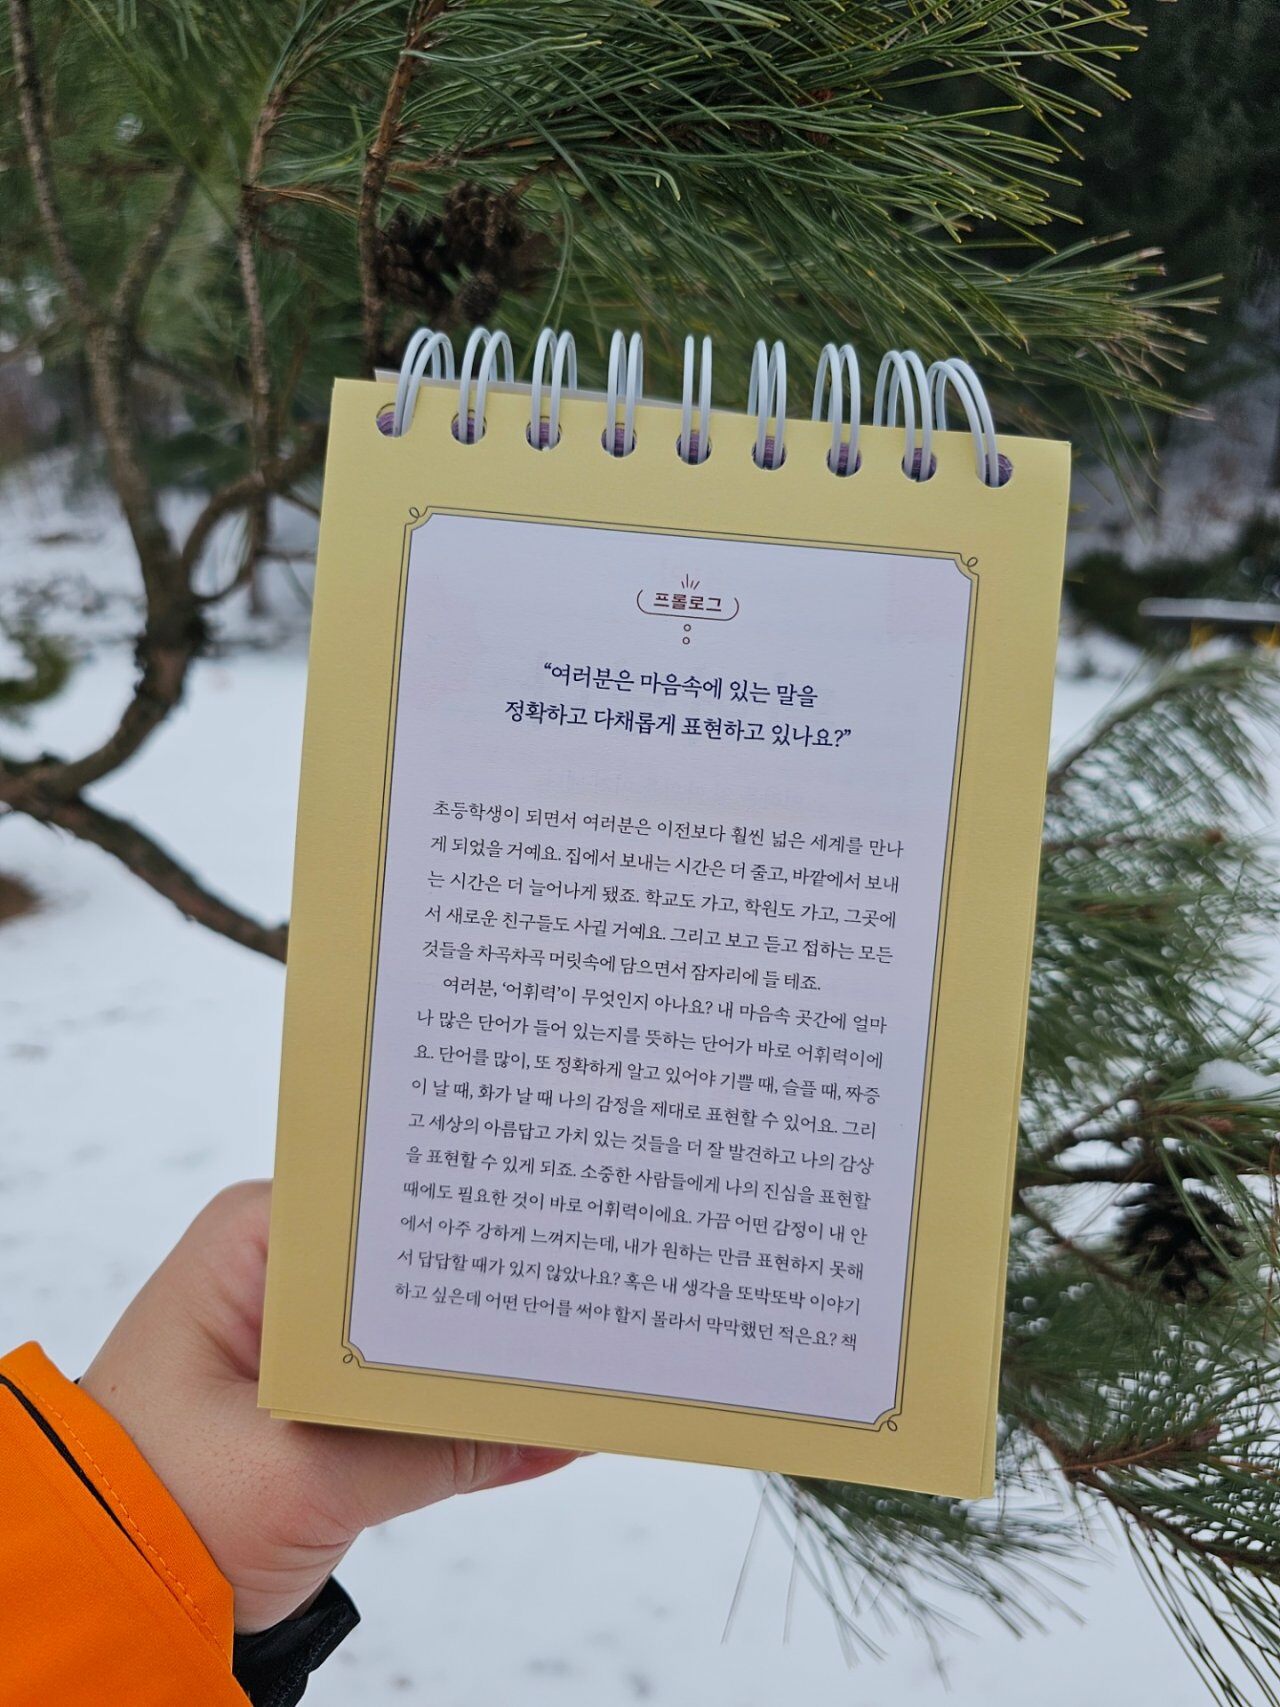 프롤로그
“여러분은 마음속에 있는 말을
정확하고 다채롭게 표현하고 있나요?”
초등학생이 되면서 여러분은 이전보다 훨씬 넓은 세계를 만나
게 되었을 거예요. 집에서 보내는 시간은 더 줄고, 바깥에서 보내
는 시간은 더 늘어나게 됐죠. 학교도 가고, 학원도 가고, 그곳에
서 새로운 친구들도 사귈 거예요. 그리고 보고 듣고 접하는 모든
것들을 차곡차곡 머릿속에 담으면서 잠자리에 들 테죠.
여러분, ‘어휘력’이 무엇인지 아나요? 내 마음속 곳간에 얼마
나 많은 단어가 들어 있는지를 뜻하는 단어가 바로 어휘력이에
요. 단어를 많이, 또 정확하게 알고 있어야 기쁠 때, 슬플 때, 짜증
이 날 때, 화가 날 때 나의 감정을 제대로 표현할 수 있어요. 그리
고 세상의 아름답고 가치 있는 것들을 더 잘 발견하고 나의 감상
을 표현할 수 있게 되죠. 소중한 사람들에게 나의 진심을 표현할
때에도 필요한 것이 바로 어휘력이에요. 가끔 어떤 감정이 내 안
에서 아주 강하게 느껴지는데, 내가 원하는 만큼 표현하지 못해
서 답답할 때가 있지 않았나요? 혹은 내 생각을 또박또박 이야기
하고 싶은데 어떤 단어를 써야 할지 몰라서 막막했던 적은요? 책